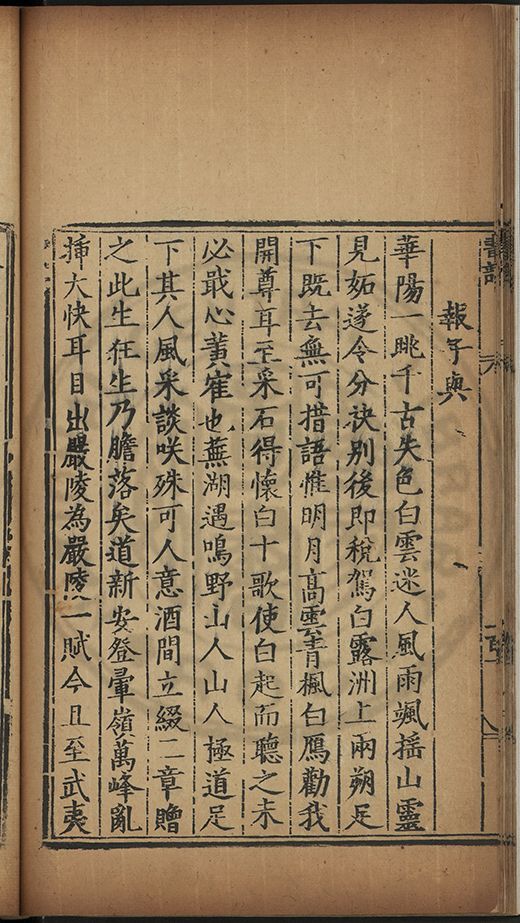 報子與
華陽一眺千古失色白雲迷人風雨颯搖山靈
見妬遂令分袂別後即稅駕白露洲上兩朔足
下既去無可措語惟明月高雲青楓白鴈勸我
開尊耳至采石得懷白十歌使白起而聽之未
必戢心黃崔也蕪湖遇鳴野山人山人極道足
下其人風采談咲殊可人意酒間立綴二章贈
之此生狂生乃膽落矣道新安登暈嶺萬峰亂
揷大快耳目出嚴陵為嚴陵一賦今且至武夷